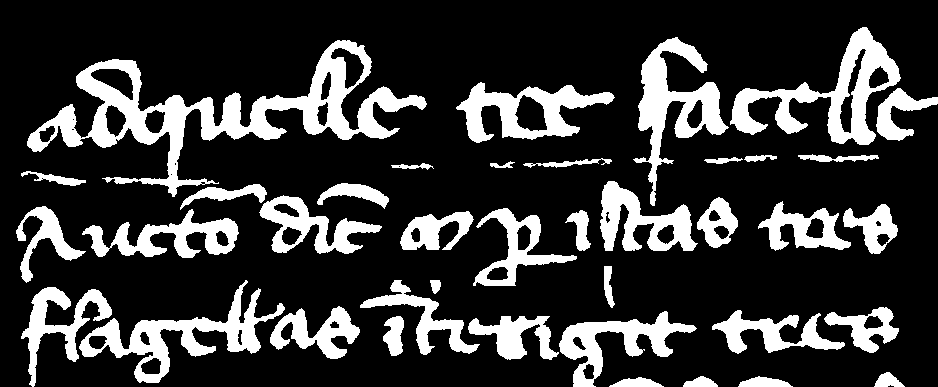 adquelle tre facelle
Auctõ dic̃ q̃ ꝑ istas tres
flagellas ĩterigit tres